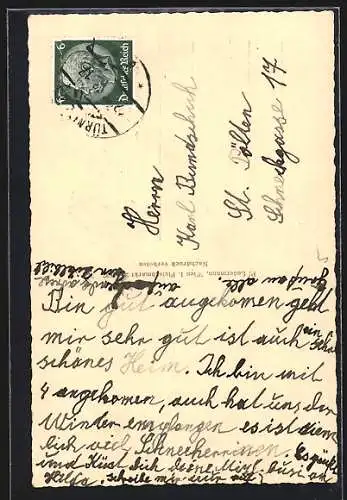 Deutsches Reich
6
6
TÜRN
Herrn
Karl Rundschuh
St. Pölten
Schneckgasse 17
P. Ledermann, Wien I, Fleischmarkt
Nachdruck verboten
Grüße an alle.
Bin gut angekomen geht
mir sehr gut ist auch ein
schönes Heim. Ich bin mit
4 angekomen, auch hat uns der
Winter empfangen es ist
lich viel
und Küst dich deine Mizi
Hilda, schreibe mir